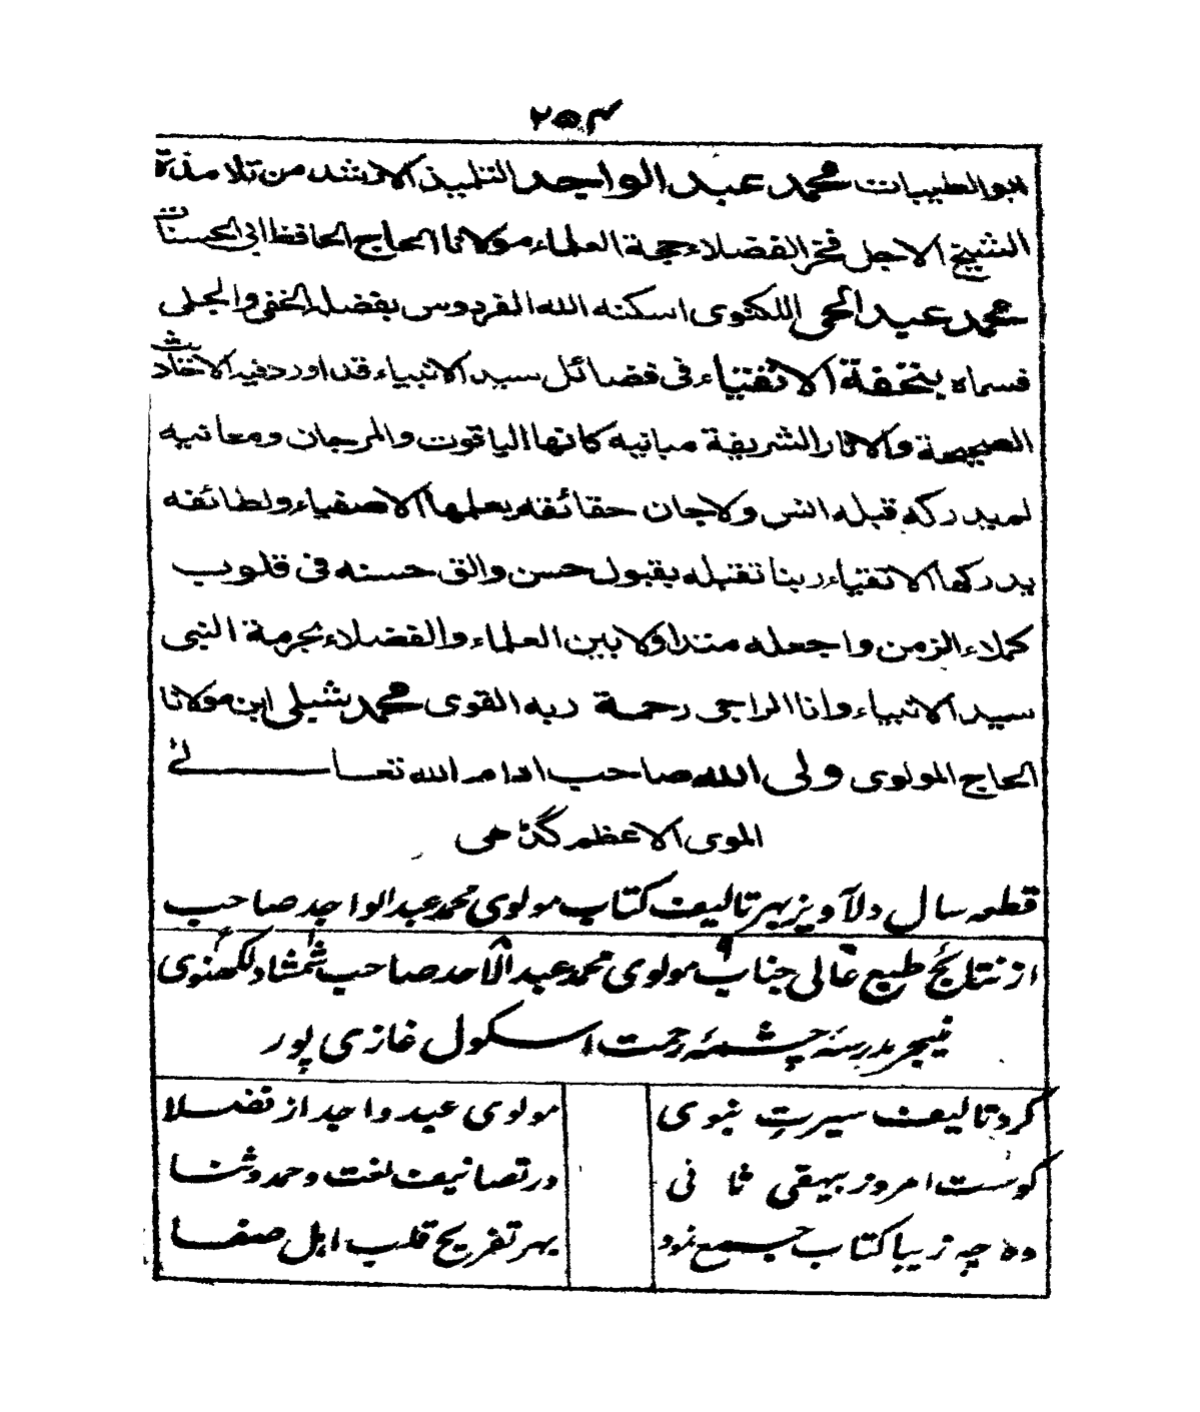 ۲۵۴
ابو الطیبات محمد عبد الواجد التلمیذ الارشد من تلامذة
الشیخ الاجل فخر الفضلاء حجة العلماء مولانا الحاج الحافظ ابی الحسنات
محمد عبد الحی اللکنوی اسکنه الله الفردوس بفضله الخفی والجلی
فسماه بتحفة الاتقیاء فی فضائل سید الانبیاء قد اورد فیه الاحادیث
الصحیحة والآثار الشریفة مبانیه کانها الیاقوت والمرجان ومعانیه
لم یدرکه قبله انس ولا جان حقائقه یعلمها الاصفیاء ولطائفه
یدرکها الاتقیاء ربنا تقبله بقبول حسن والق حسنه فی قلوب
کملاء الزمن واجعله متداولا بین العلماء والفضلاء بحرمة النبی
سید الانبیاء وانا الراجی رحمة ربه القوی محمد شبلی ابن مولانا
الحاج المولوی ولی الله صاحب ادام الله تعالیٰ
الموی الاعظم گڈھی
قطعہ سال دلآویز بہر تالیف کتاب مولوی محمد عبد الواجد صاحب
از نتائج طبع عالی جناب مولوی محمد عبد الاحد صاحب شمشاد لکھنوی
منیجر مدرسۂ چشمۂ رحمت اسکول غازی پور
کرد تالیف سیرتِ نبوی مولوی عبد واجد از فضلا
کوست امروز بیہقی ثانی در تصانیف نعت وحمد وثنا
وہ چہ زیبا کتاب جمع نمود بہر تفریح قلب اہل صفا